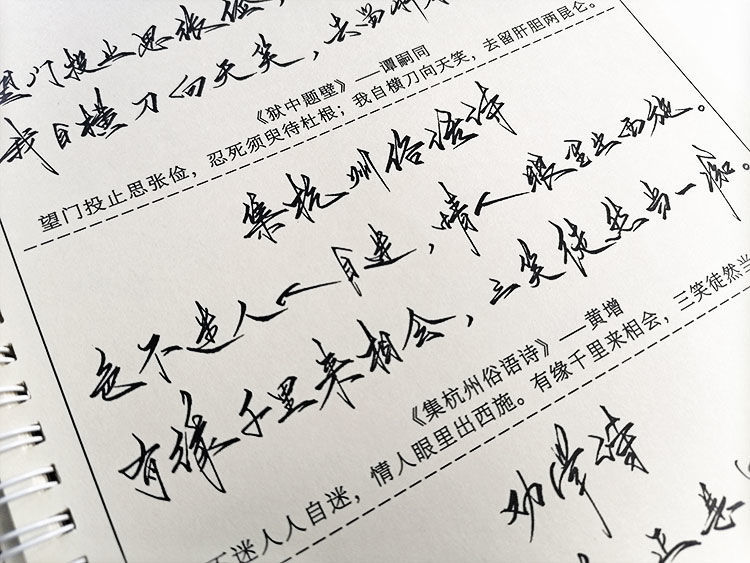 望门投止思张俭，
我自横刀向天笑，去留肝
《狱中题壁》——谭嗣同
望门投止思张俭，忍死须臾待杜根；我自横刀向天笑，去留肝胆两昆仑。
集杭州俗语诗
色不迷人人自迷，情人眼里出西施。
有缘千里来相会，三笑徒然当一痴。
《集杭州俗语诗》——黄增
不迷人人自迷，情人眼里出西施。有缘千里来相会，三笑徒然当
劝学诗